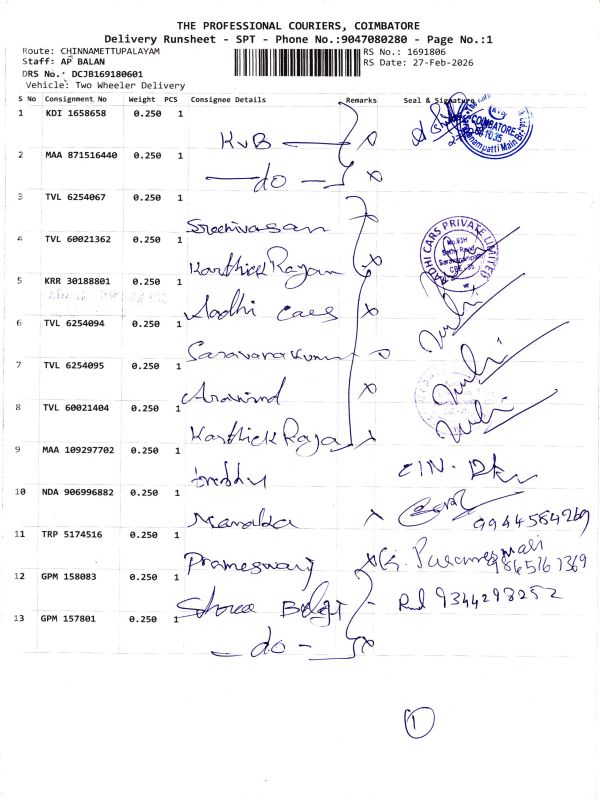 THE PROFESSIONAL COURIERS, COIMBATORE
Delivery Runsheet - SPT - Phone No.:9047080280 - Page No.:1
Route: CHINNAMETTUPALAYAM RS No.: 1691806
Staff: AP BALAN RS Date: 27-Feb-2026
DRS No.: DCJB169180601
Vehicle: Two Wheeler Delivery
S No Consignment No Weight PCS Consignee Details Remarks Seal & Signature
1 KDI 1658658 0.250 1 KvB
COIMBATORE
2 MAA 871516440 0.250 1 do
3 TVL 6254067 0.250 1 Sreenivasan
4 TVL 60021362 0.250 1 Karthick Rajan
AADHI CARS PRIVATE LIMITED
5 KRR 30188801 0.250 1 Aadhi Cars
6 TVL 6254094 0.250 1 Saravanakumar
7 TVL 6254095 0.250 1 Aravind
8 TVL 60021404 0.250 1 Karthick Raja
9 MAA 109297702 0.250 1
10 NDA 906996882 0.250 1 9944584269
11 TRP 5174516 0.250 1 Prameswary K. Parameswari 9865161369
12 GPM 158083 0.250 1 Shree 9344298252
13 GPM 157801 0.250 1 do
1